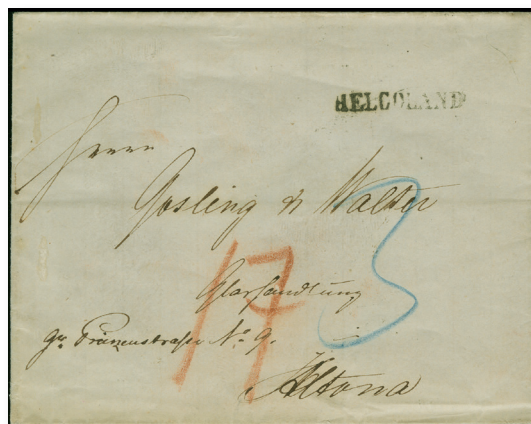 HELGOLAND
Herrn
Gosling & Walter
Glashandlung
gr. Prinzenstraße No 9.
Altona
17
3